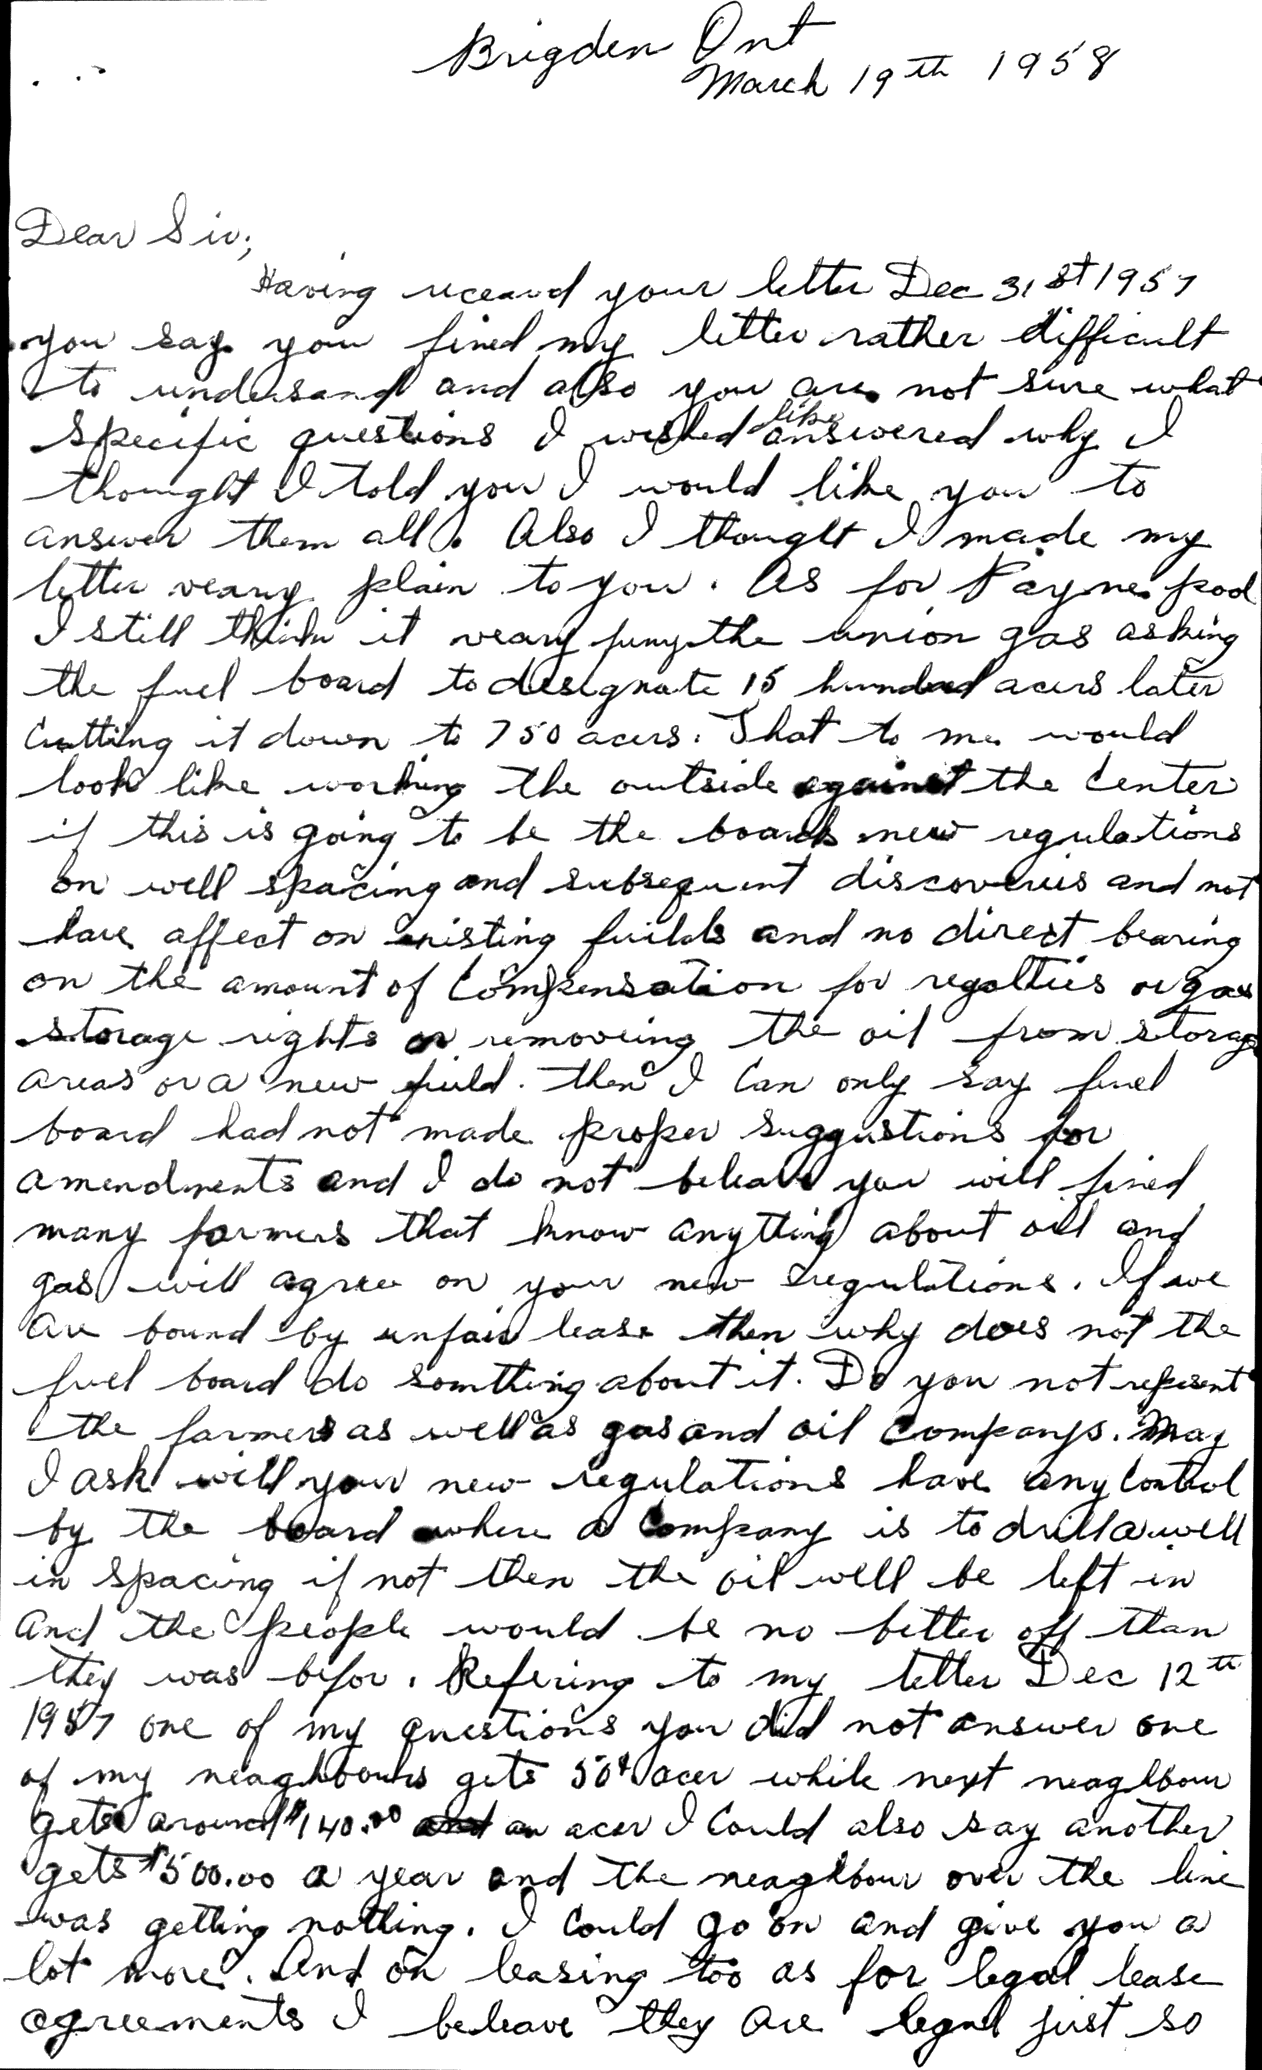 Brigden Ont
March 19th 1958
Dear Sir;
Having receaved your letter Dec 31st 1957
you say you fined my letter rather difficult
to undersand and also you are not sure what
specific questions I wished like answered why I
thought I told you I would like you to
answer them all. Also I thought I made my
letter veary plain to you. As for Payne pool
I still think it veary funy the union gas asking
the fuel board to designate 15 hundred acers later
Cutting it down to 750 acers. That to me would
look like working the outside against the Center
if this is going to be the boards new regulations
on well spacing and subsequent discoveries and not
have affect on existing fuilds and no direct bearing
on the amount of Compensation for regalties or gas
storage rights or removeing the oil from storage
areas or a new fuild. then I Can only say fuel
board had not made proper suggustions for
amendments and I do not beleave you will fined
many farmers that know anything about oil and
gas will agree on your new regulations. If we
are bound by unfair lease then why does not the
fuel board do somthing about it. Do you not represent
the farmers as well as gas and oil Companys. May
I ask will your new regulations have any Control
by the board where a Company is to drill a well
in spacing if not then the oil will be left in
and the people would be no better off than
they was befor. Refering to my letter Dec 12th
1957 one of my questions you did not answer one
of my neaghbours gets 50¢ acer while next neaghbour
gets around $140.00 an acer I Could also say another
gets $500.00 a year and the neaghbour over the line
was getting nothing. I Could go on and give you a
lot more. And on leasing too as for legal lease
agreements I beleave they are legal just so